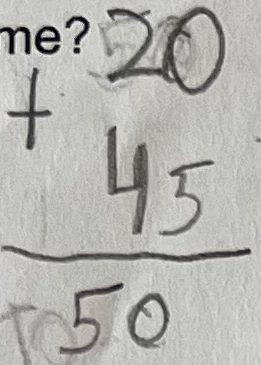 me? 20
+
45
50